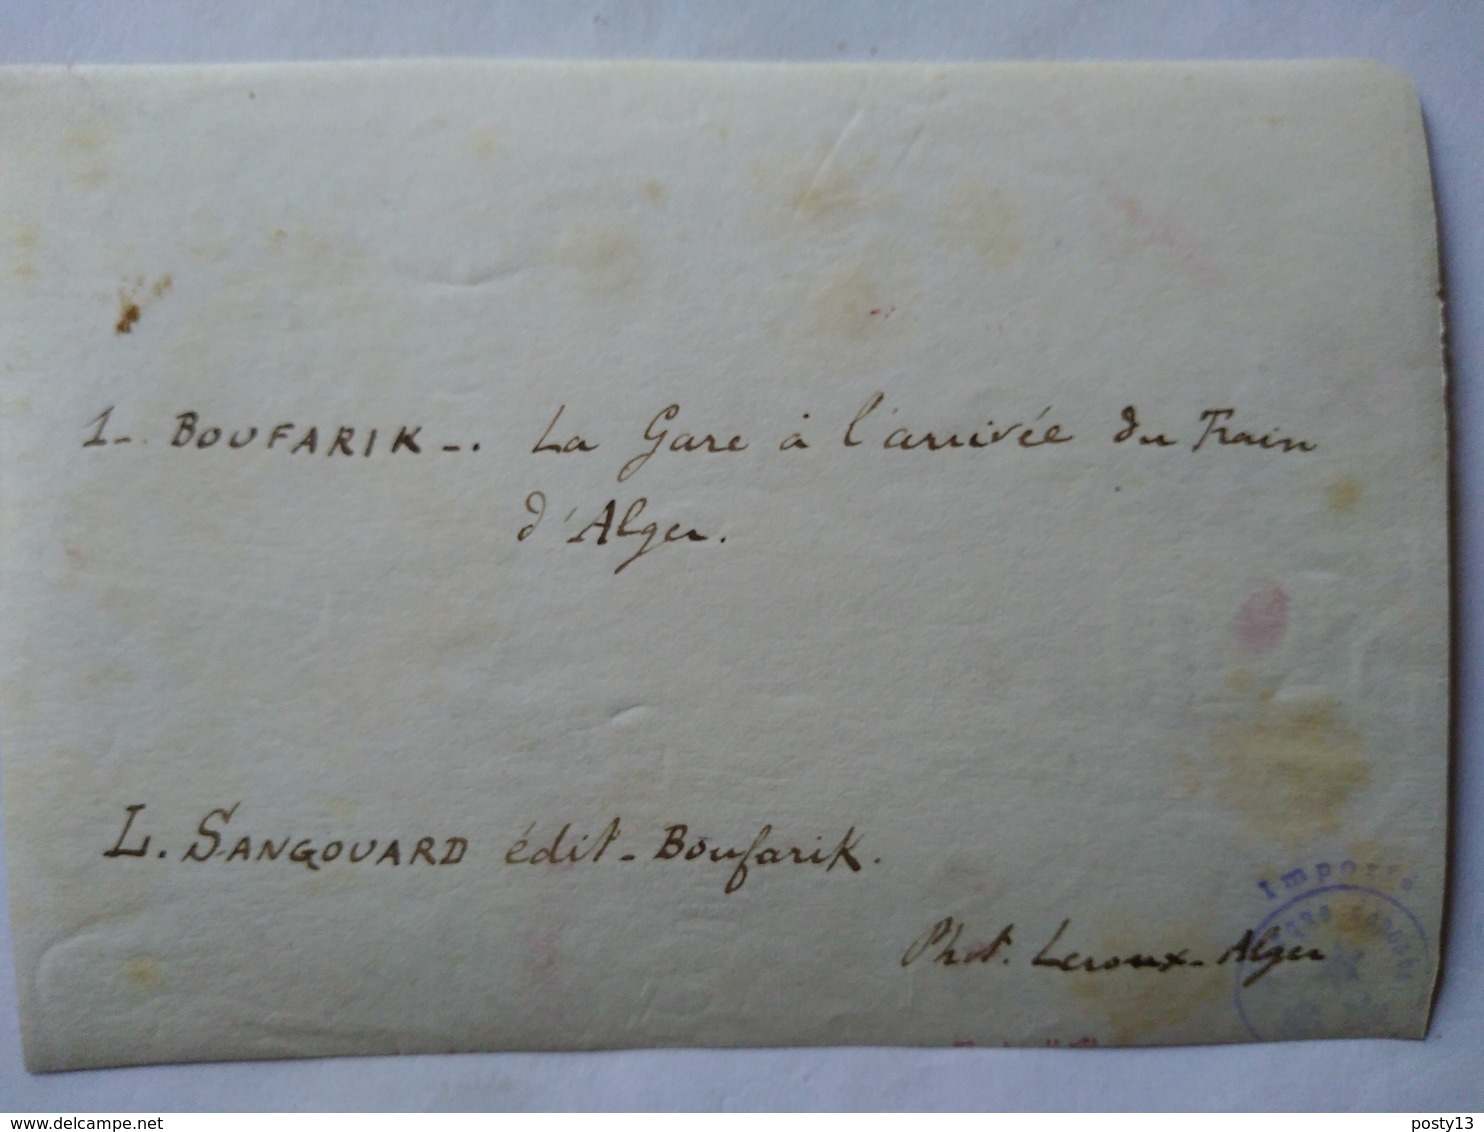 1_. BOUFARIK_. La Gare à l'arrivée du Train
d'Alger.
L. SANGOUARD édit_ Boufarik.
Phot. Leroux_Alger
delcampe.net
posty13